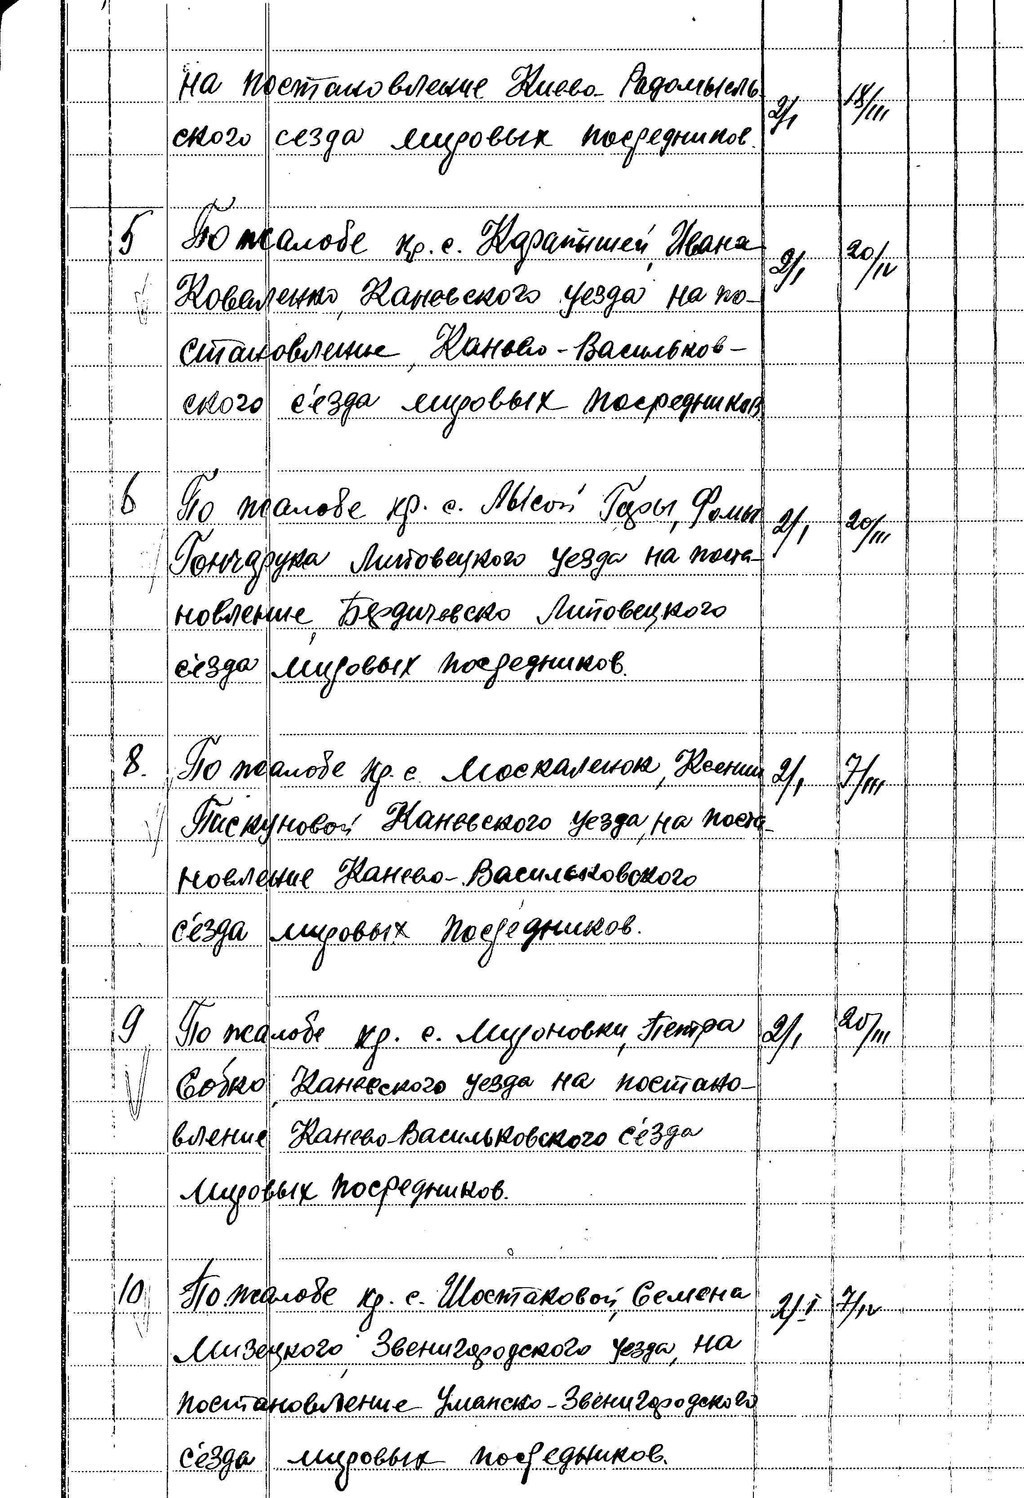 на постановление Киево-Радомысль- 2/I 18/III
ского сезда мировых посредников.
5 По жалобе кр. с. Карапышей, Ивана 2/I 20/IV
Коваленко, Каневского уезда на по-
становление, Канево-Васильков-
ского с'езда мировых посредников
6 По жалобе кр. с. Лысой Горы, Фомы 2/I 20/III
Гончарука Липовецкого уезда на поста-
новление, Бердичевско Липовецкого
с'езда мировых посредников.
8. По жалобе кр. с. Москаленок, Ксении 2/I 7/III
Пискуновой Каневского уезда, на поста-
новление Канево-Васильковского
с'езда мировых посредников.
9 По жалобе кр. с. Мироновки, Петра 2/I 20/III
Собко, Каневского уезда на постано-
вление Канево-Васильковского с'езда
мировых посредников.
10 По жалобе кр. с. Шостаковой, Семена 2/I 7/IV
Мизецкого, Звенигородского уезда, на
постановление Уманско-Звенигородского
с'езда мировых посредников.